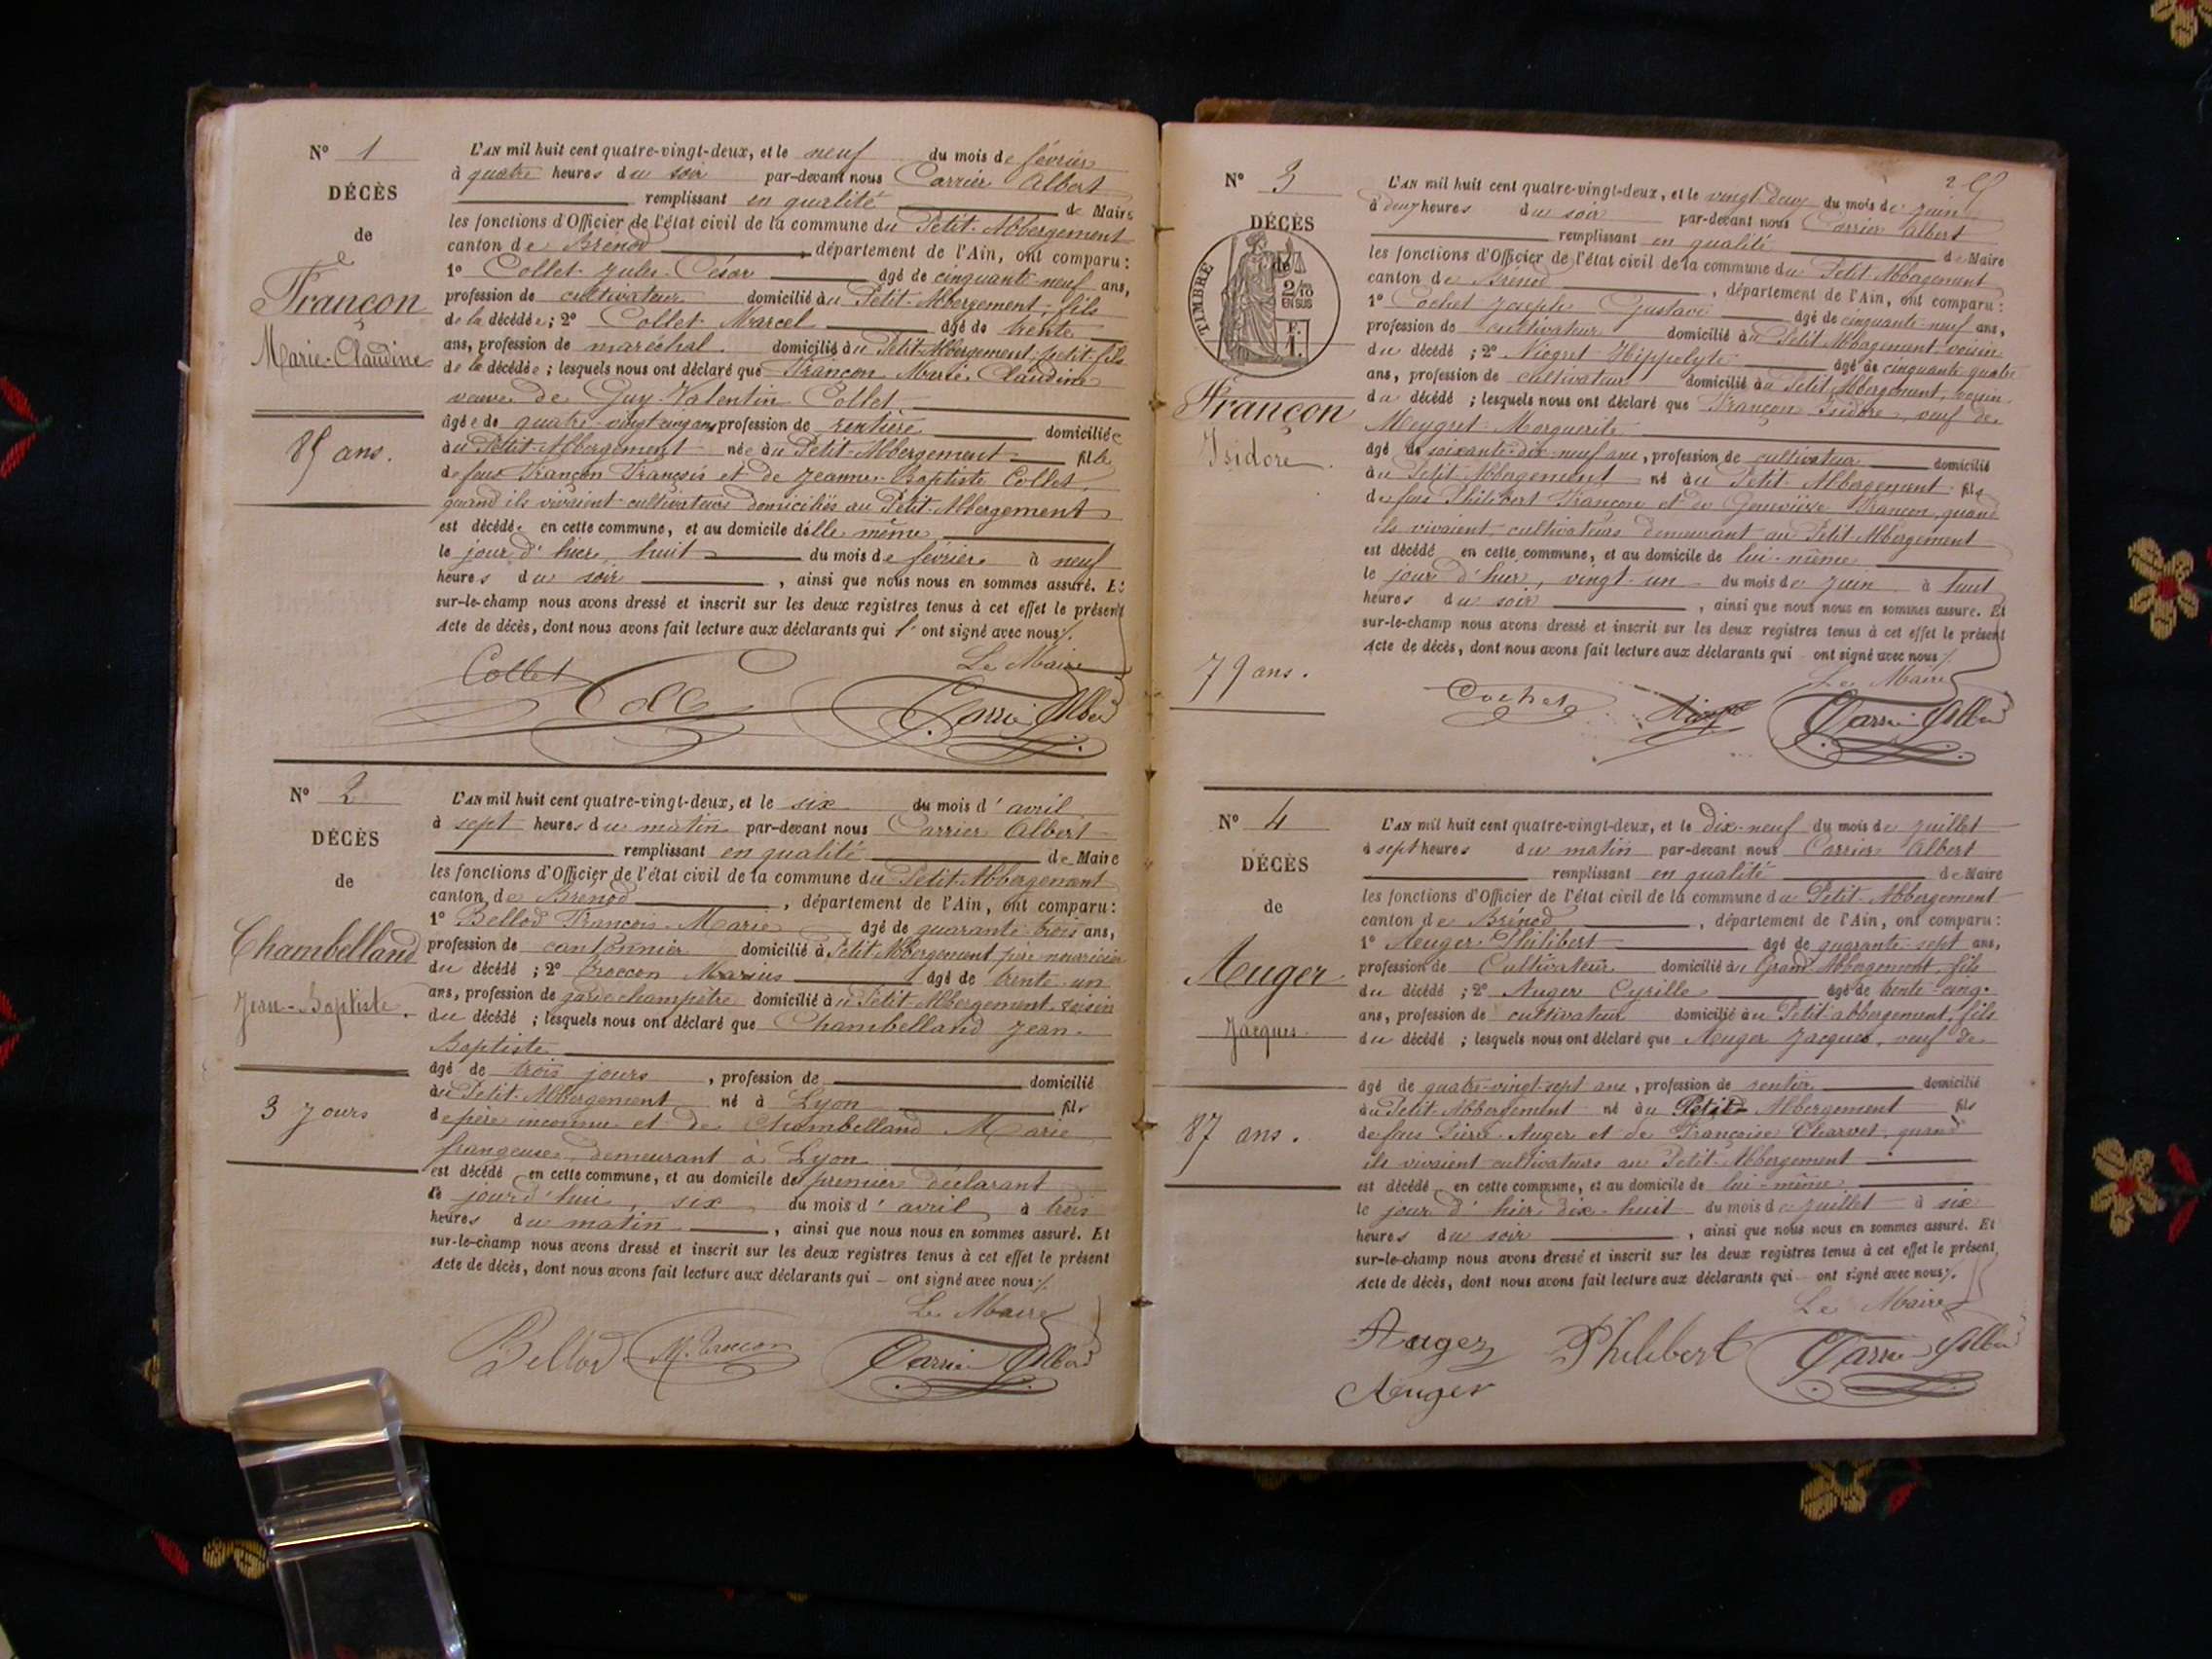 N° 1
DÉCÈS
de
Françon
Marie-Claudine
85 ans.
L'AN mil huit cent quatre-vingt-deux, et le neuf du mois de février
à quatre heures du soir par-devant nous Carrier Albert
remplissant en qualité de Maire
les fonctions d'Officier de l'état civil de la commune du Petit-Abbergement
canton de Brénod, département de l'Ain, ont comparu :
1° Collet Jules César âgé de cinquante-neuf ans,
profession de cultivateur domicilié au Petit-Abbergement, fils
de la décédée ; 2° Collet Marcel âgé de trente
ans, profession de maréchal domicilié au Petit-Abbergement, petit-fils
de la décédée ; lesquels nous ont déclaré que Françon Marie Claudine
veuve de Guy-Valentin Collet
âgée de quatre-vingt-cinq ans, profession de rentière domiciliée
au Petit-Abbergement née au Petit-Abbergement fille
de feus Françon François et de Jeanne-Baptiste Collet,
quand ils vivaient cultivateurs domiciliés au Petit-Abbergement
est décédée en cette commune, et au domicile d'elle même
le jour d'hier, huit du mois de février à neuf
heures du soir, ainsi que nous nous en sommes assuré. Et
sur-le-champ nous avons dressé et inscrit sur les deux registres tenus à cet effet le présent
Acte de décès, dont nous avons fait lecture aux déclarants qui l'ont signé avec nous.
Le Maire
Collet Carrier Albert
N° 2
DÉCÈS
de
Chambelland
Jean-Baptiste.
3 jours
L'AN mil huit cent quatre-vingt-deux, et le six du mois d'avril
à sept heures du matin par-devant nous Carrier Albert
remplissant en qualité de Maire
les fonctions d'Officier de l'état civil de la commune du Petit-Abbergement
canton de Brénod, département de l'Ain, ont comparu :
1° Bellod François-Marie âgé de quarante-trois ans,
profession de cantonnier domicilié à Petit Abbergement père nourricier
du décédé ; 2° Troccon Marius âgé de trente-un
ans, profession de garde champêtre domicilié au Petit-Abbergement voisin
du décédé ; lesquels nous ont déclaré que Chambelland Jean-
Baptiste
âgé de trois jours, profession de domicilié
au Petit-Abbergement né à Lyon fils
de père inconnu et de Chambelland Marie
frangeuse, demeurant à Lyon
est décédé en cette commune, et au domicile du premier déclarant
le jourd'hui, six du mois d'avril à trois
heures du matin, ainsi que nous nous en sommes assuré. Et
sur-le-champ nous avons dressé et inscrit sur les deux registres tenus à cet effet le présent
Acte de décès, dont nous avons fait lecture aux déclarants qui ont signé avec nous.
Le Maire
Bellod M. Troccon Carrier Albert
N° 3
DÉCÈS
de
TIMBRE
2/10
EN SUS
Françon
Isidore.
79 ans.
L'AN mil huit cent quatre-vingt-deux, et le vingt-deux du mois de juin
à deux heures du soir par-devant nous Carrier Albert
remplissant en qualité de Maire
les fonctions d'Officier de l'état civil de la commune du Petit-Abbergement
canton de Brénod, département de l'Ain, ont comparu :
1° Cochet Joseph Gustave âgé de cinquante-neuf ans,
profession de cultivateur domicilié au Petit Abbergement voisin
du décédé ; 2° Niogret Hippolyte âgé de cinquante-quatre
ans, profession de cultivateur domicilié au Petit Abbergement, voisin
du décédé ; lesquels nous ont déclaré que Françon Isidore, veuf de
Meygret Marguerite
âgé de soixante-dix-neuf ans, profession de cultivateur domicilié
au Petit Abbergement né au Petit Abbergement fils
de feus Philibert Françon et de Geneviève Françon, quand
ils vivaient cultivateurs demeurant au Petit-Abbergement
est décédé en cette commune, et au domicile de lui-même
le jour d'hier, vingt-un du mois de juin à huit
heures du soir, ainsi que nous nous en sommes assuré. Et
sur-le-champ nous avons dressé et inscrit sur les deux registres tenus à cet effet le présent
Acte de décès, dont nous avons fait lecture aux déclarants qui ont signé avec nous.
Le Maire
Cochet Carrier Albert
N° 4
DÉCÈS
de
Auger
Jacques
87 ans.
L'AN mil huit cent quatre-vingt-deux, et le dix-neuf du mois de juillet
à sept heures du matin par-devant nous Carrier Albert
remplissant en qualité de Maire
les fonctions d'Officier de l'état civil de la commune du Petit-Abbergement
canton de Brénod, département de l'Ain, ont comparu :
1° Auger Philibert âgé de quarante-sept ans,
profession de Cultivateur domicilié au Grand Abbergement, fils
du décédé ; 2° Auger Cyrille âgé de trente-cinq
ans, profession de cultivateur domicilié au Petit abbergement, fils
du décédé ; lesquels nous ont déclaré que Auger Jacques, veuf de
âgé de quatre-vingt-sept ans, profession de rentier domicilié
au Petit-Abbergement né au Petit Abbergement fils
de feus Pierre Auger et de Françoise Charvet, quand
ils vivaient cultivateurs au Petit-Abbergement
est décédé en cette commune, et au domicile de lui-même
le jour d'hier dix-huit du mois de juillet à six
heures du soir, ainsi que nous nous en sommes assuré. Et
sur-le-champ nous avons dressé et inscrit sur les deux registres tenus à cet effet le présent
Acte de décès, dont nous avons fait lecture aux déclarants qui ont signé avec nous.
Le Maire
Auger Philibert Carrier Albert
Auger